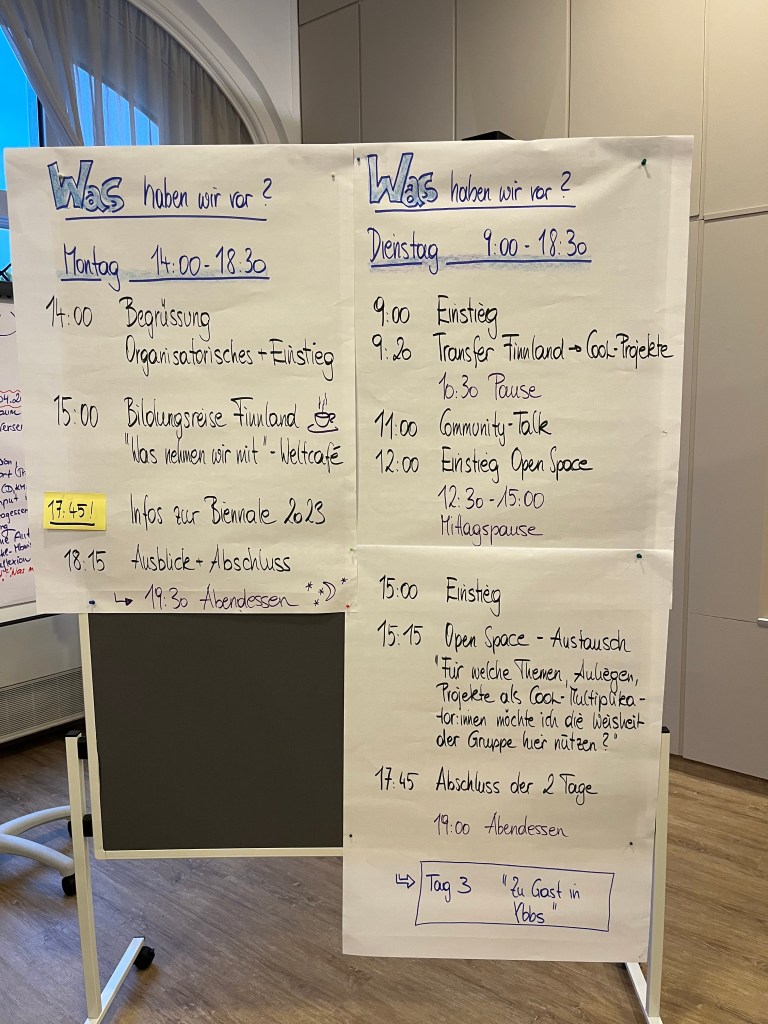 Was haben wir vor?
Montag 14:00-18:30
14:00 Begrüssung
Organisatorisches + Einstieg
15:00 Bildungsreise Finnland
"Was nehmen wir mit" - Weltcafé
17:45! Infos zur Biennale 2023
18:15 Ausblick + Abschluss
↳ 19:30 Abendessen
Was haben wir vor?
Dienstag 9:00-18:30
9:00 Einstieg
9:20 Transfer Finnland → COOL-Projekte
10:30 Pause
11:00 Community-Talk
12:00 Einstieg Open Space
12:30-15:00
Mittagspause
15:00 Einstieg
15:15 Open Space - Austausch
"Für welche Themen, Anliegen,
Projekte als COOL-Multiplika-
tor:innen möchte ich die Weisheit
der Gruppe hier nützen?"
17:45 Abschluss der 2 Tage
19:00 Abendessen
Tag 3 "Zu Gast in
Ybbs"